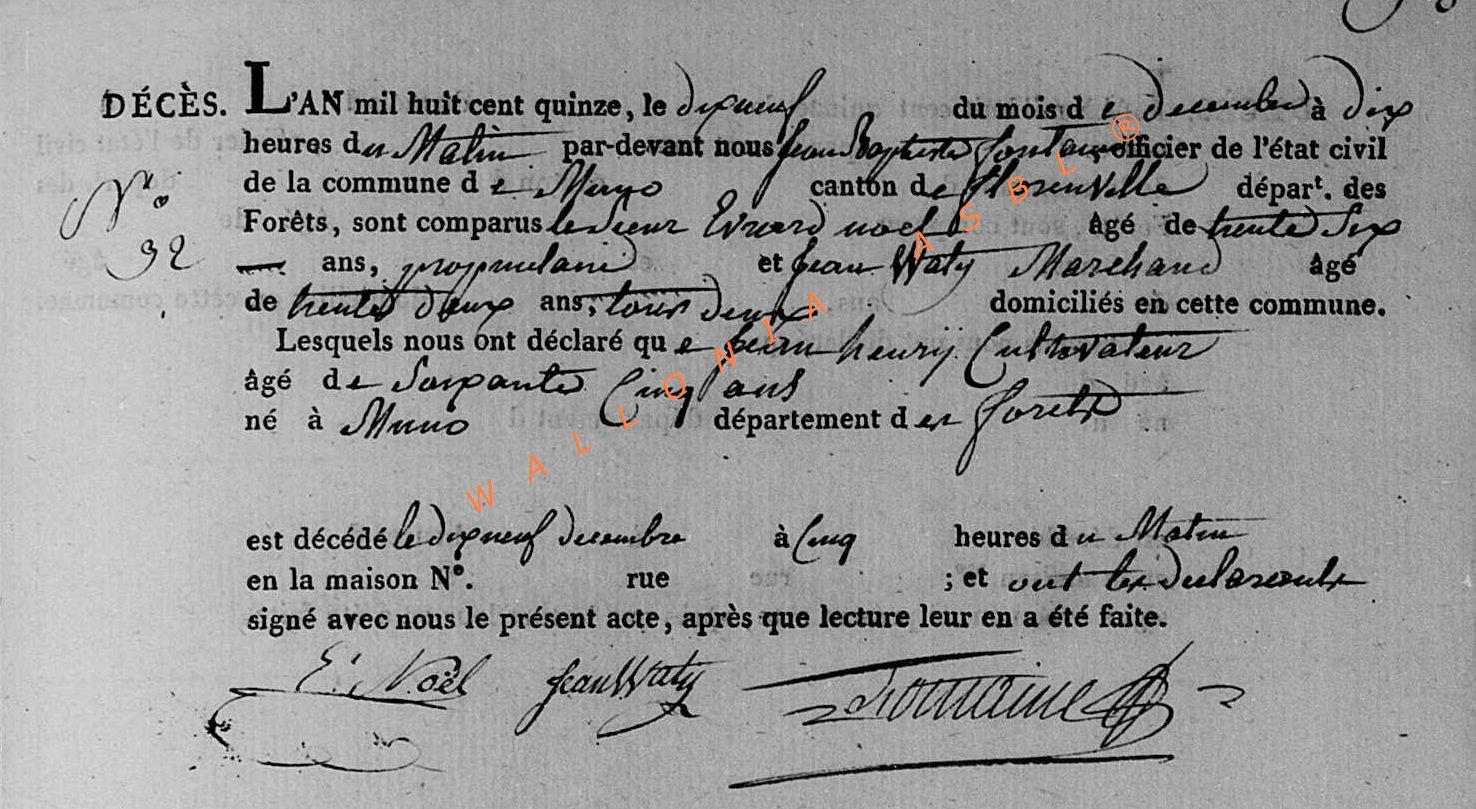 DÉCÈS. L'AN mil huit cent quinze, le dixneuf du mois de decembre à dix
heures du Matin par-devant nous Jean Baptiste fontaine, officier de l'état civil
N° 32
de la commune de Muno canton de florenville départ. des
Forêts, sont comparus le sieur Evrard noel âgé de trente Six
ans, proprietaire et Jean Waty Marchand âgé
de trente deux ans, tous deux domiciliés en cette commune.
Lesquels nous ont déclaré que jean henry Cultivateur
âgé de Soixante Cinq ans
né à Muno département des forets
est décédé le dixneuf decembre à Cinq heures du Matin
en la maison N°. rue ; et ont les declarants
signé avec nous le présent acte, après que lecture leur en a été faite.
E. Noël Jean Waty Fontaine
WALLONIA ASBL ®